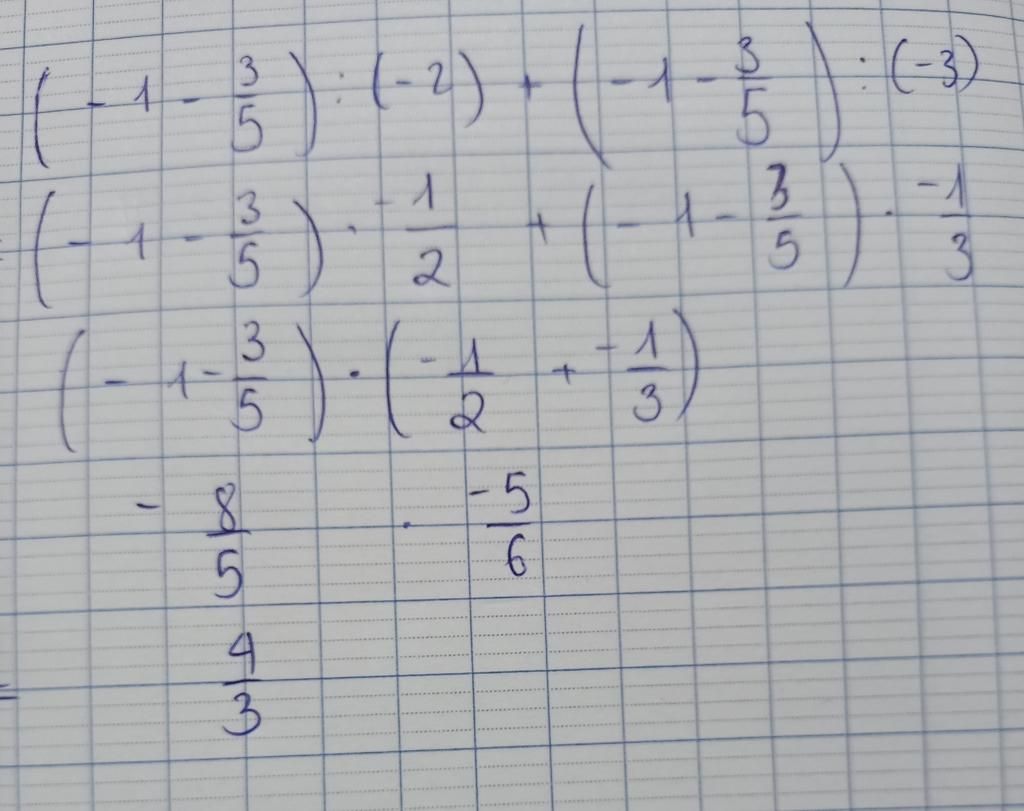 (-1 - 3/5) : (-2) + (-1 - 3/5) : (-3)
= (-1 - 3/5) . -1/2 + (-1 - 3/5) . -1/3
(-1 - 3/5) . (-1/2 + -1/3)
- 8/5 . -5/6
= 4/3